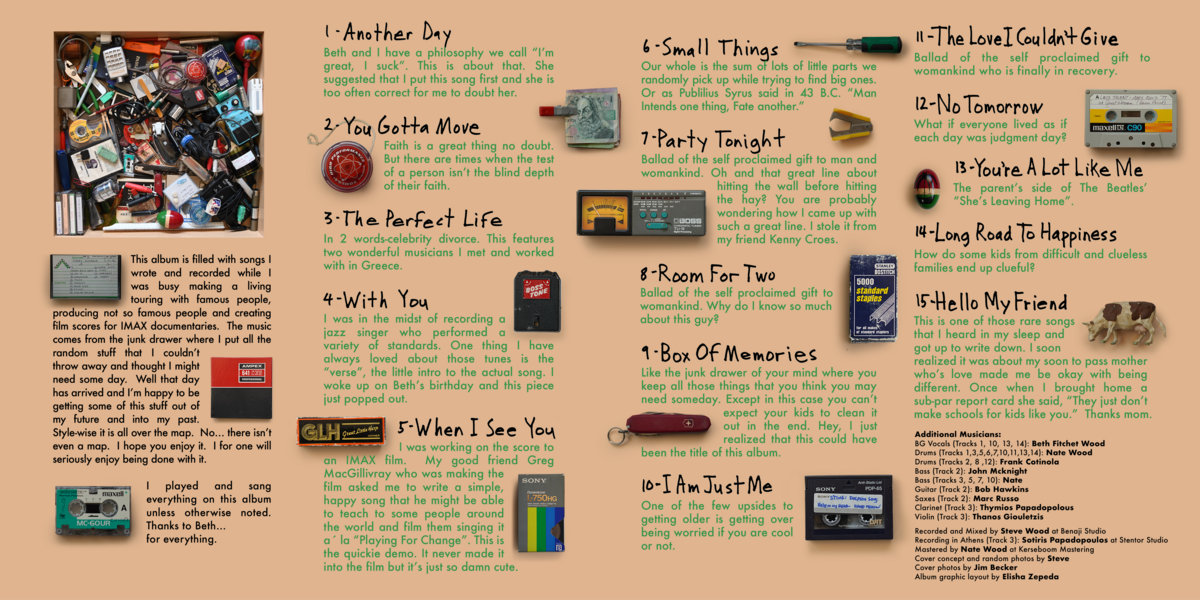 This album is filled with songs I
wrote and recorded while I
was busy making a living
touring with famous people,
producing not so famous people and creating
film scores for IMAX documentaries. The music
comes from the junk drawer where I put all the
random stuff that I couldn't
throw away and thought I might
need some day. Well that day
has arrived and I'm happy to be
getting some of this stuff out of
my future and into my past.
Style-wise it is all over the map. No... there isn't
even a map. I hope you enjoy it. I for one will
seriously enjoy being done with it.
AMPEX
641
maxell
MC-60UR
A
I played and sang
everything on this album
unless otherwise noted.
Thanks to Beth...
for everything.
1-Another Day
Beth and I have a philosophy we call "I'm
great, I suck". This is about that. She
suggested that I put this song first and she is
too often correct for me to doubt her.
2-You Gotta Move
Faith is a great thing no doubt.
But there are times when the test
of a person isn't the blind depth
of their faith.
3-The Perfect Life
In 2 words-celebrity divorce. This features
two wonderful musicians I met and worked
with in Greece.
4-With You
I was in the midst of recording a
jazz singer who performed a
variety of standards. One thing I have
always loved about those tunes is the
"verse", the little intro to the actual song. I
woke up on Beth's birthday and this piece
just popped out.
BOSS
TONE
GLH
5-When I See You
I was working on the score to
an IMAX film. My good friend Greg
MacGillivray who was making the
film asked me to write a simple,
happy song that he might be able
to teach to some people around
the world and film them singing it
a´ la "Playing For Change". This is
the quickie demo. It never made it
into the film but it's just so damn cute.
SONY
L-750HG
6-Small Things
Our whole is the sum of lots of little parts we
randomly pick up while trying to find big ones.
Or as Publilius Syrus said in 43 B.C. "Man
Intends one thing, Fate another."
7-Party Tonight
Ballad of the self proclaimed gift to man and
womankind. Oh and that great line about
hitting the wall before hitting
the hay? You are probably
wondering how I came up with
such a great line. I stole it from
my friend Kenny Croes.
BOSS
8-Room For Two
Ballad of the self proclaimed gift to
womankind. Why do I know so much
about this guy?
STANLEY
BOSTITCH
5000
standard
staples
9-Box Of Memories
Like the junk drawer of your mind where you
keep all those things that you think you may
need someday. Except in this case you can't
expect your kids to clean it
out in the end. Hey, I just
realized that this could have
been the title of this album.
10-I Am Just Me
One of the few upsides to
getting older is getting over
being worried if you are cool
or not.
SONY
PDP-65
11-The Love I Couldn't Give
Ballad of the self proclaimed gift to
womankind who is finally in recovery.
12-No Tomorrow
What if everyone lived as if
each day was judgment day?
A
maxell
C90
13-You're A Lot Like Me
The parent's side of The Beatles'
"She's Leaving Home".
14-Long Road To Happiness
How do some kids from difficult and clueless
families end up clueful?
15-Hello My Friend
This is one of those rare songs
that I heard in my sleep and
got up to write down. I soon
realized it was about my soon to pass mother
who's love made me be okay with being
different. Once when I brought home a
sub-par report card she said, "They just don't
make schools for kids like you." Thanks mom.
Additional Musicians:
BG Vocals (Tracks 1, 10, 13, 14): Beth Fitchet Wood
Drums (Tracks 1,3,5,6,7,10,11,13,14): Nate Wood
Drums (Tracks 2, 8 ,12): Frank Cotinola
Bass (Track 2): John Mcknight
Bass (Tracks 3, 5, 7, 10): Nate
Guitar (Track 2): Bob Hawkins
Saxes (Track 2): Marc Russo
Clarinet (Track 3): Thymios Papadopolous
Violin (Track 3): Thanos Giouletzis
Recorded and Mixed by Steve Wood at Benaji Studio
Recording in Athens (Track 3): Sotiris Papadopoulos at Stentor Studio
Mastered by Nate Wood at Kerseboom Mastering
Cover concept and random photos by Steve
Cover photos by Jim Becker
Album graphic layout by Elisha Zepeda